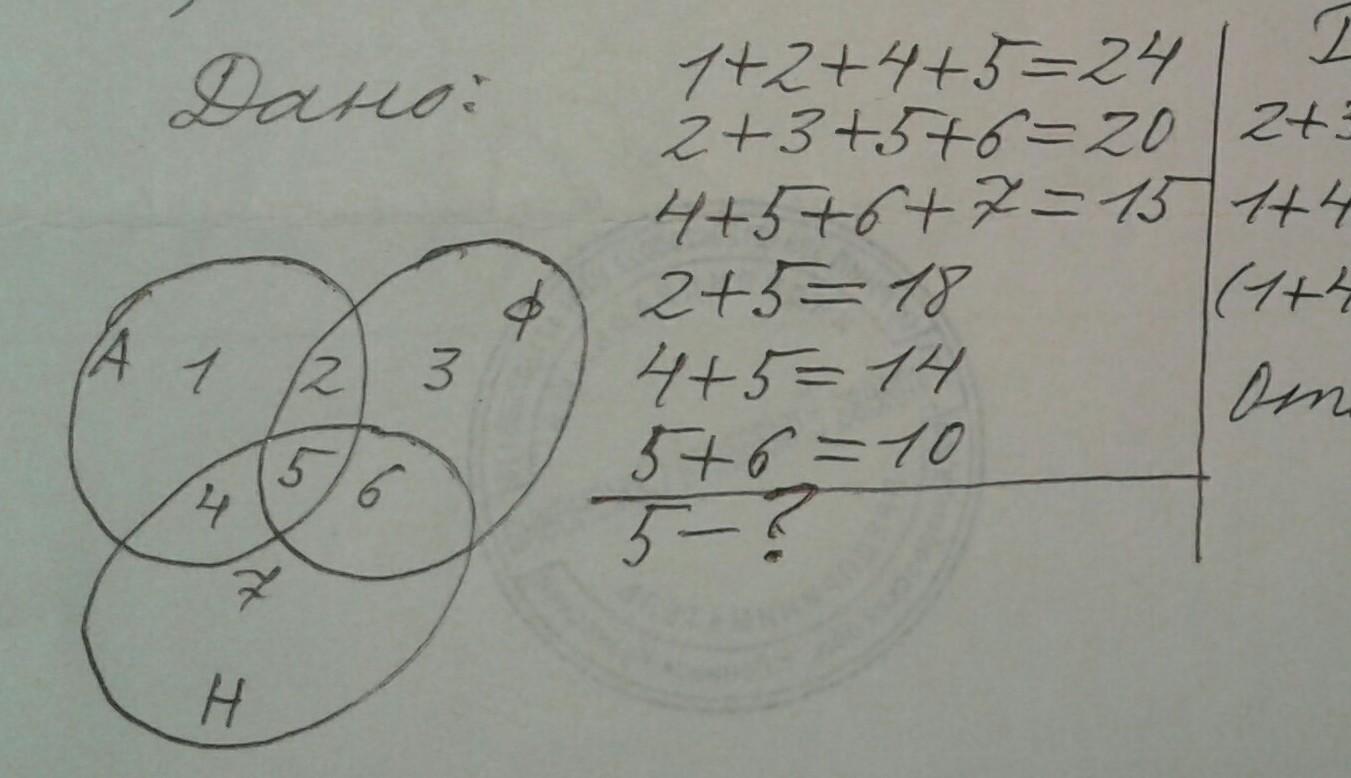 Дано:
1+2+4+5=24
2+3+5+6=20
4+5+6+7=15
2+5=18
4+5=14
5+6=10
5-?
А 1 2 3 Ф
4 5 6
7
Н
2+3
1+4
(1+4